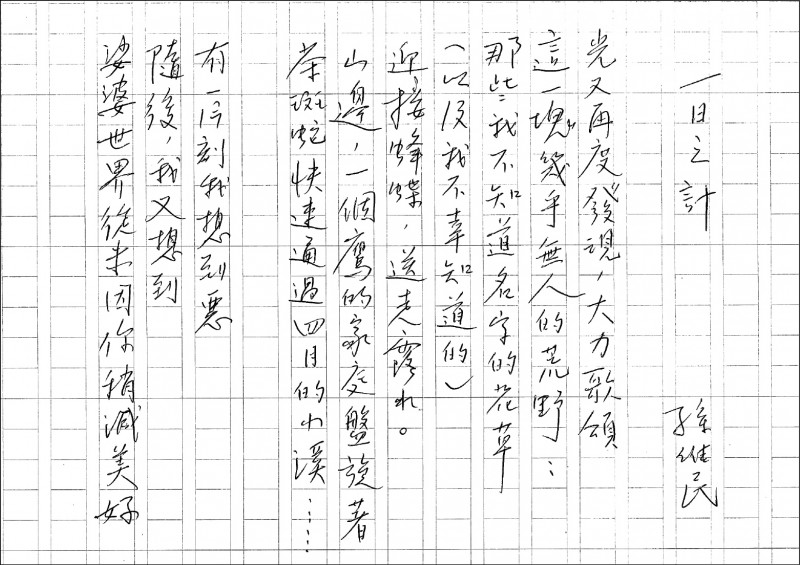 一日之計
孫維民
光又再度發現，大力歌頌
這一塊幾乎無人的荒野：
那些我不知道名字的花草
（以及我不幸知道的）
迎接蜂蝶，送走露水。
山邊，一個鷹的家庭盤旋著
茶斑蛇快速通過四月的小溪……
有一片刻我想到惡
隨後，我又想到
娑婆世界從未因你稍減美好